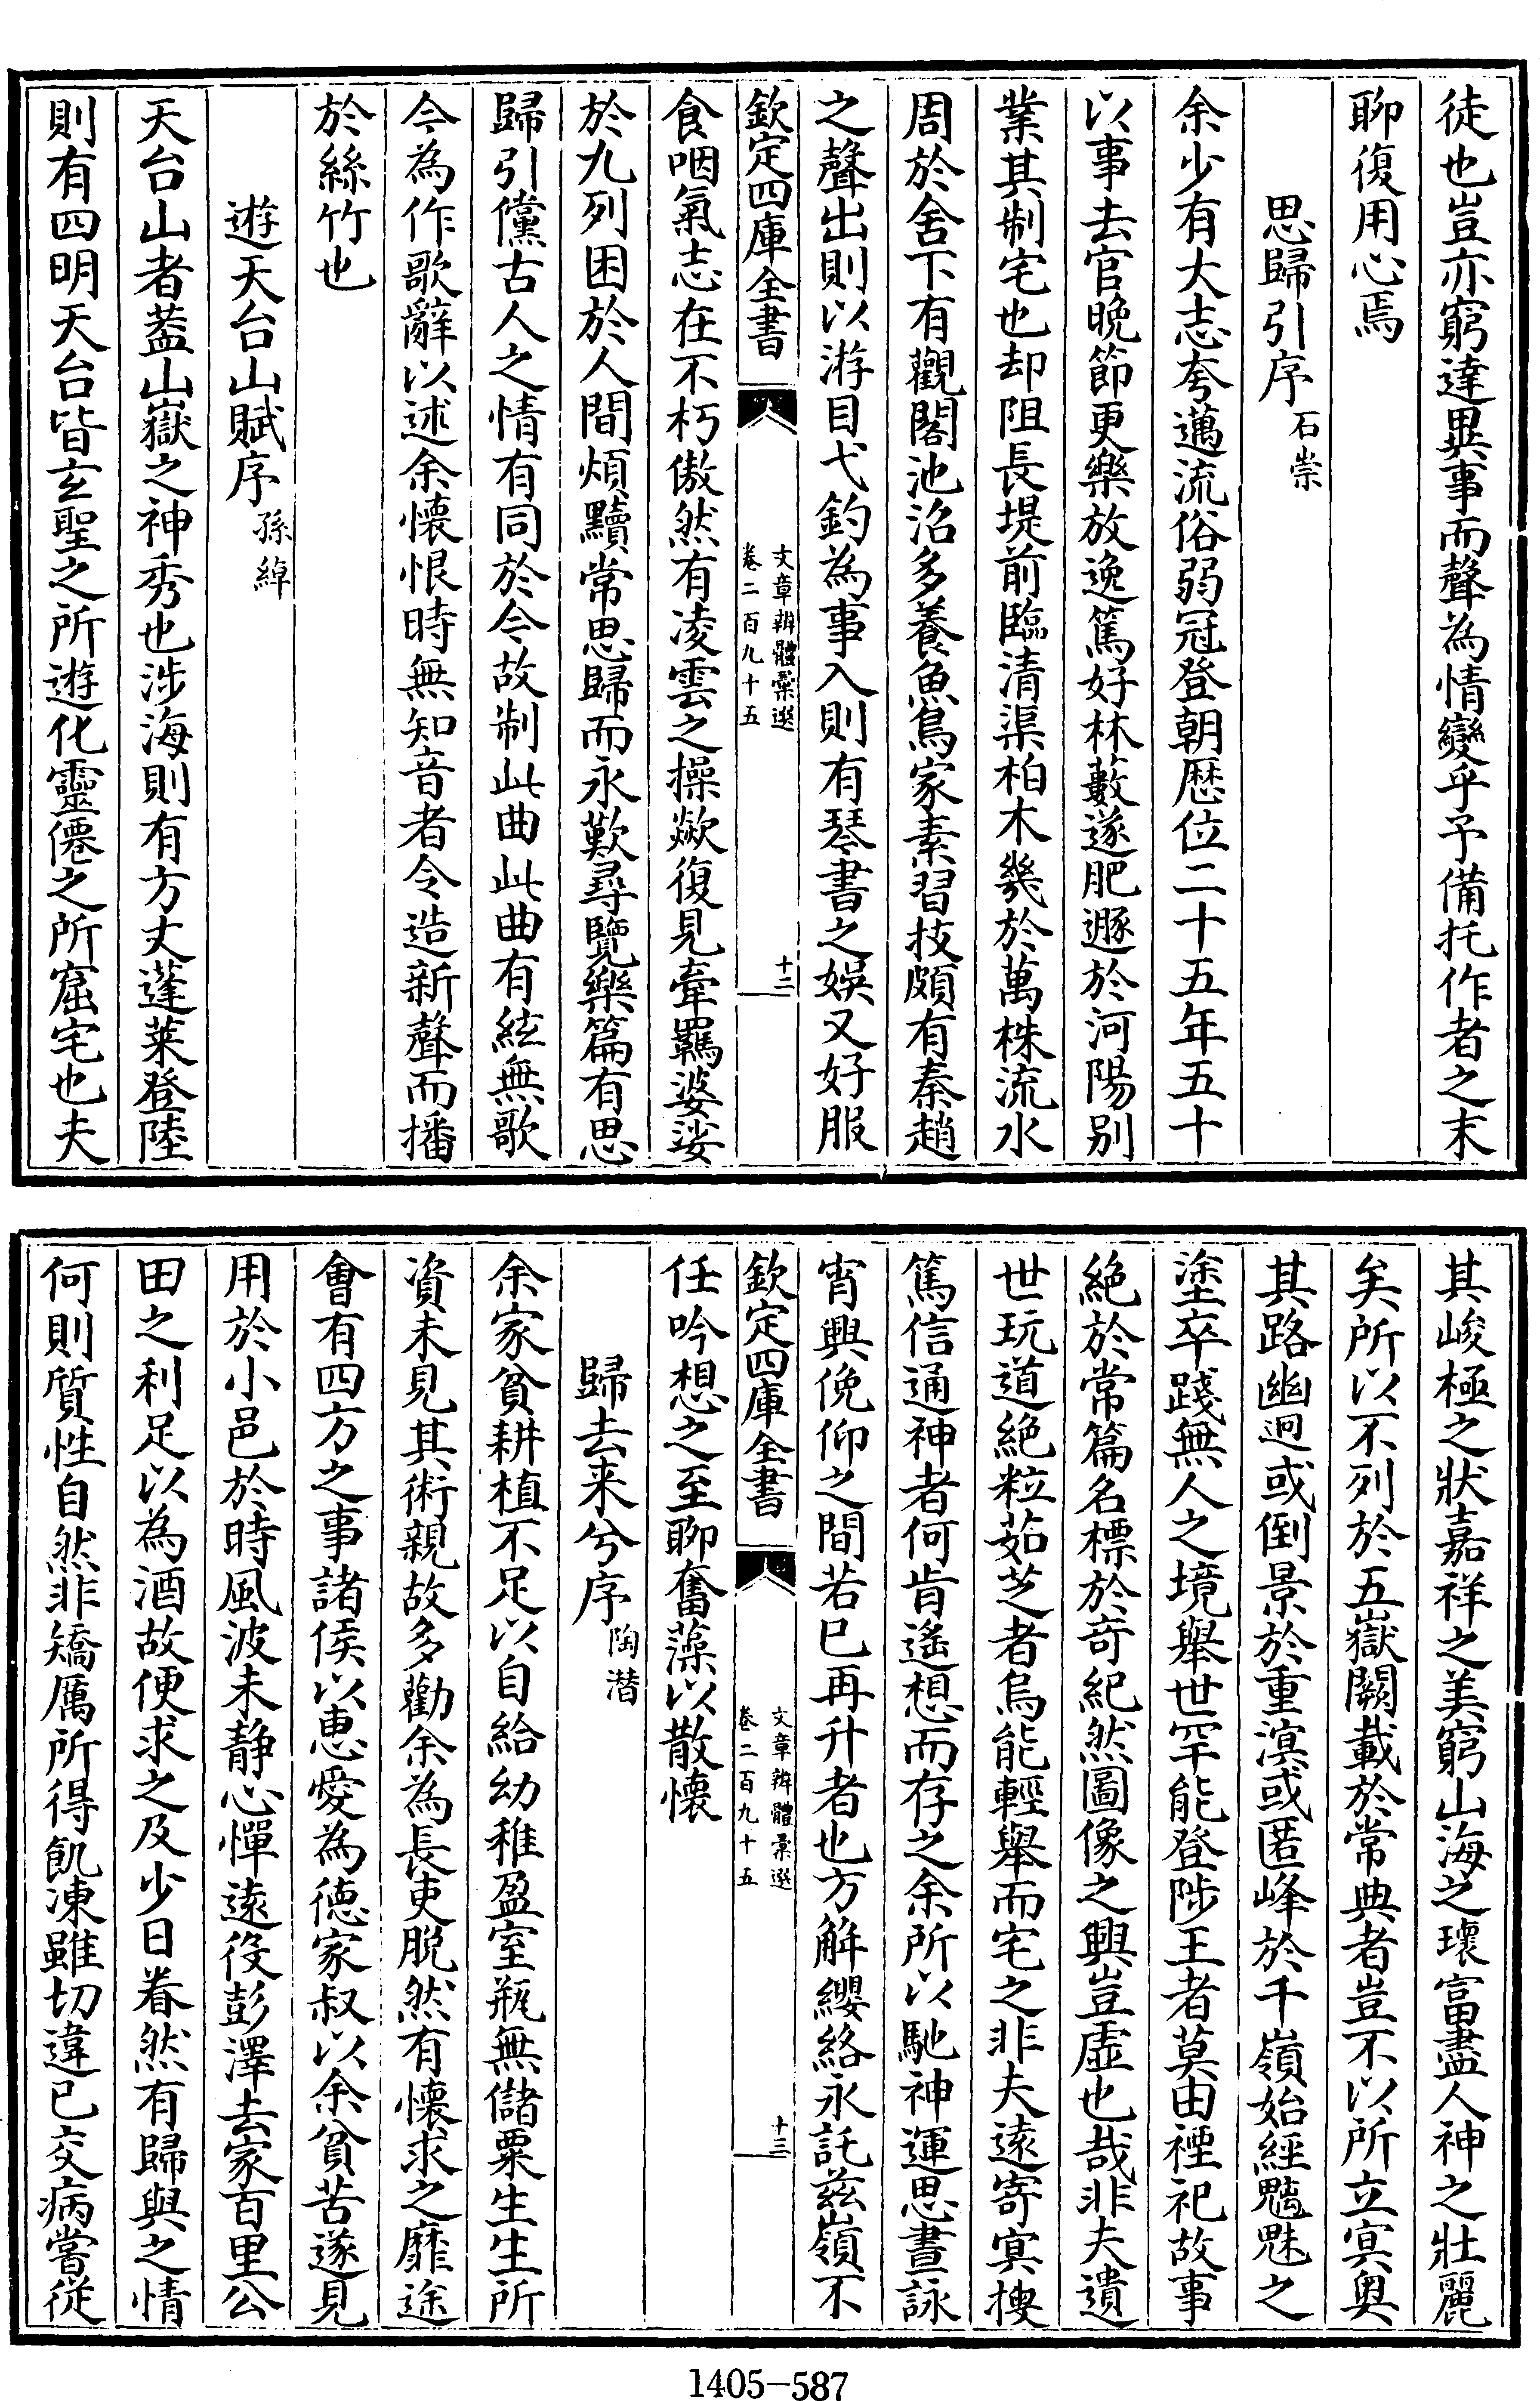 徒也豈亦窮達異事而聲為情變乎予備托作者之末
聊復用心焉
思歸引序石崇
余少有大志夸邁流俗弱冠登朝歴位二十五年五十
以事去官晚節更樂放逸篤好林藪遂肥遯於河陽别
業其制宅也却阻長堤前臨清渠柏木幾於萬株流水
周於舍下有觀閣池沼多養魚鳥家素習技頗有秦趙
之聲出則以游目弋釣為事入則有琴書之娛又好服
欽定四庫全書
文章辨體彙選
卷二百九十五
十二
食咽氣志在不朽傲然有凌雲之操歘復見牽羈婆娑
於九列困於人間煩黷常思歸而永歎尋覽樂篇有思
歸引儻古人之情有同於今故制此曲此曲有絃無歌
今為作歌辭以述余懷恨時無知音者令造新聲而播
於絲竹也
遊天台山賦序孫綽
天台山者葢山嶽之神秀也涉海則有方丈蓬萊登陸
則有四明天台皆玄聖之所遊化靈僊之所窟宅也夫
其峻極之狀嘉祥之美窮山海之瓌富盡人神之壯麗
矣所以不列於五嶽闕載於常典者豈不以所立㝠奥
其路幽迥或倒景於重溟或匿峰於千嶺始經魑魅之
塗卒踐無人之境舉世罕能登陟王者莫由禋祀故事
絶於常篇名標於奇紀然圖像之興豈虚也哉非夫遺
世玩道絶粒茹芝者烏能輕舉而宅之非夫遠寄㝠搜
篤信通神者何肯遙想而存之余所以馳神運思晝詠
宵興俛仰之間若已再升者也方解纓絡永託兹嶺不
欽定四庫全書
文章辨體彙選
卷二百九十五
十三
任吟想之至聊奮藻以散懷
歸去来兮序陶潜
余家貧耕植不足以自給幼稚盈室瓶無儲粟生生所
資未見其術親故多勸余為長吏脱然有懷求之靡途
會有四方之事諸侯以恵愛為徳家叔以余貧苦遂見
用於小邑於時風波未静心憚遠役彭澤去家百里公
田之利足以為酒故便求之及少日眷然有歸與之情
何則質性自然非矯厲所得飢凍雖切違已交病嘗從
1405-587